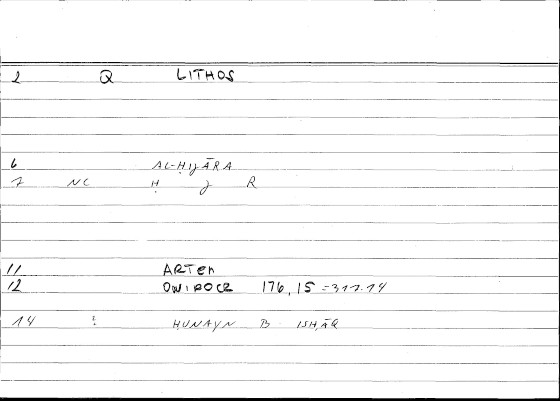 2 Q LITHOS
6 AL-ḤIJĀRA
7 NC Ḥ J R
11 ARTEM
12 ONIROCR 176,15 =317.14
14 : ḤUNAYN B ISḤĀQ